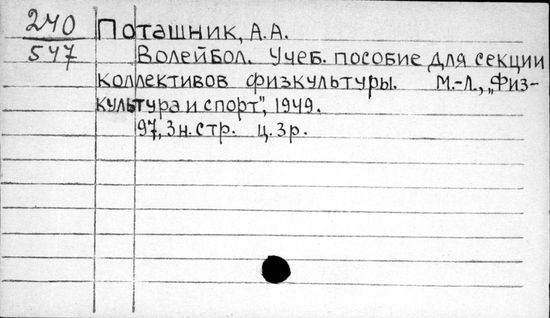 240
547
Поташник, А.А.
Волейбол. Учеб. пособие для секции
коллективов физкультуры. М.-Л., „Физ-
культура и спорт", 1949.
97, 3 н. стр. ц. 3 р.